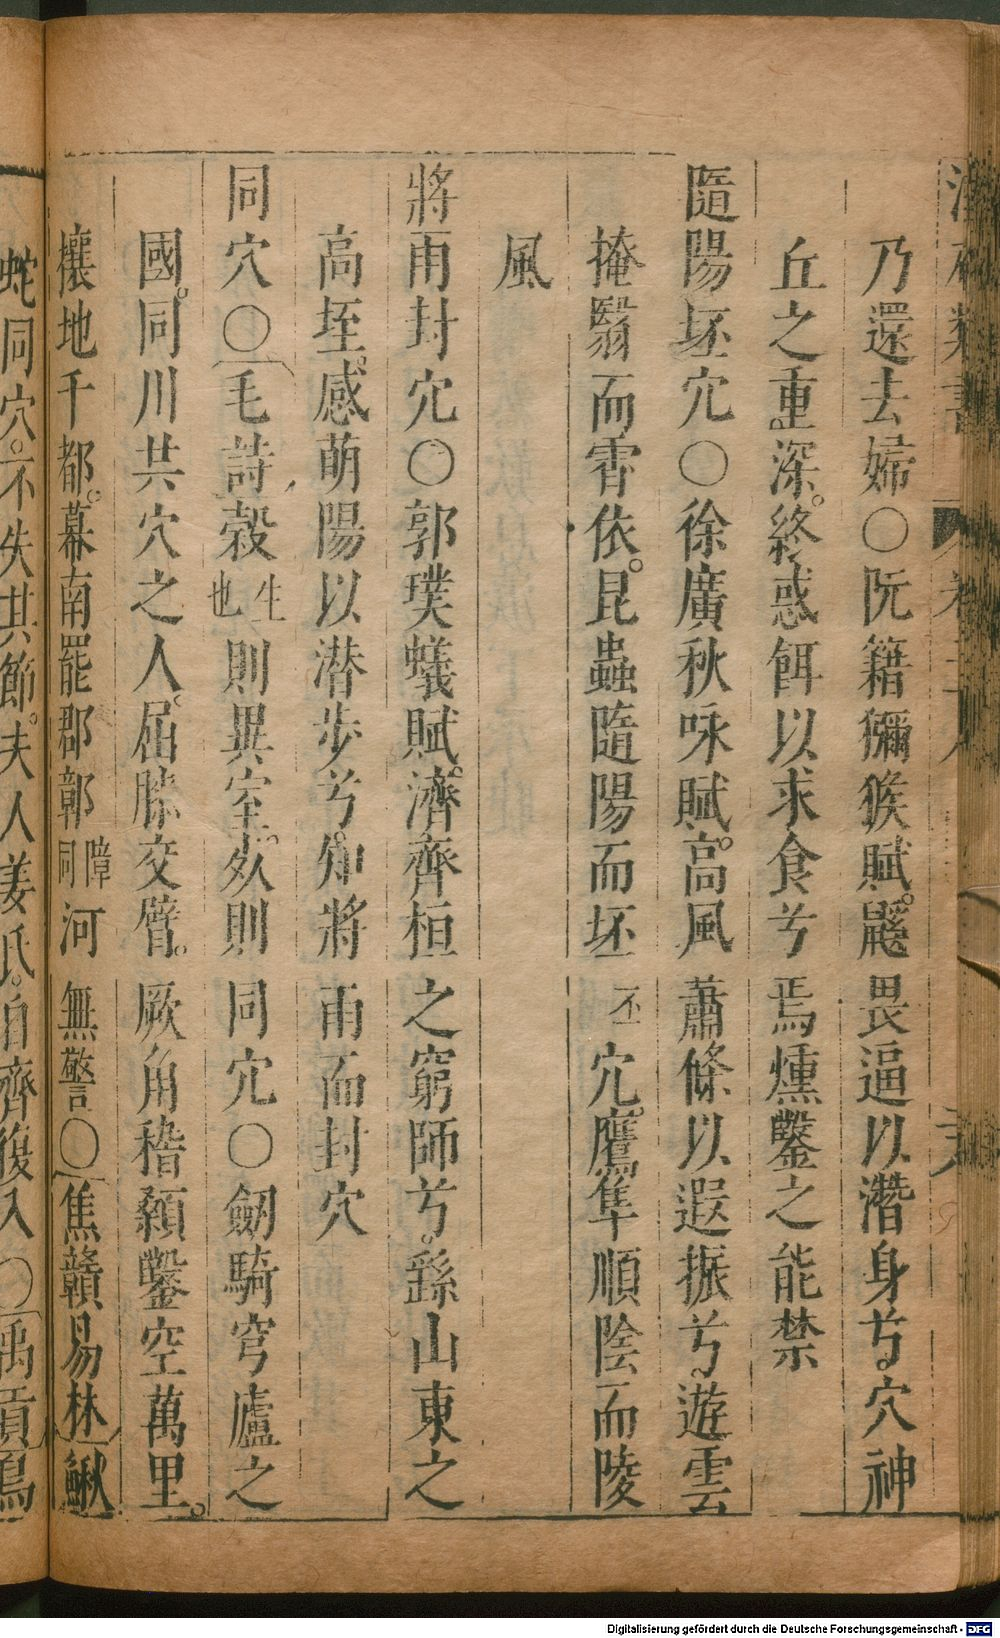 乃還去婦〇阮籍獼猴賦。鼷畏逼以潛身兮。穴神
丘之重深。終惑餌以求食兮焉熏鑿之能禁
隨陽坯穴〇徐廣秋咏賦。高風蕭條以遐振兮。遊雲
掩翳而霄依。昆蟲隨陽而坯丕穴。鷹隼順陰而陵
風
將雨封穴〇郭璞蟻賦。濟齊桓之窮師兮。繇山東之
高垤。感萌陽以潛步兮。知將雨而封穴
同穴〇毛詩榖生也則異室。死則同穴〇劒騎穹廬之
國。同川共穴之人。屈膝交臂。厥角稽顙鑿空萬里。
攘地千都。幕南罷郡鄣障同河無警〇焦贛易林鰍
蛇同穴。不失其節。夫人姜氏。自齊復入〇禹貢鳥
Digitalisierung gefördert durch die Deutsche Forschungsgemeinschaft - DFG